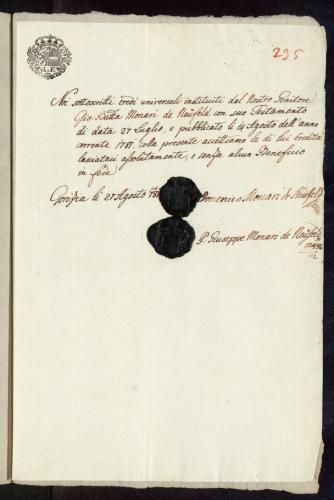 235
Noi sottoscritti eredi universali instituiti dal Nostro Genitore
Gio: Batta Monari de Neüfeld con suo Testamento
di data 27 Luglio, e pubblicato li 14 Agosto dell'anno
corrente 1787. colla presente accettiamo la di lui eredità
lasciataci assolutamente, e senza alcun Beneficio
in fede
Gorizia li 27 Agosto 1787
Domenico Monari de Neüfeld
P. Giuseppe Monari de Neüfeld